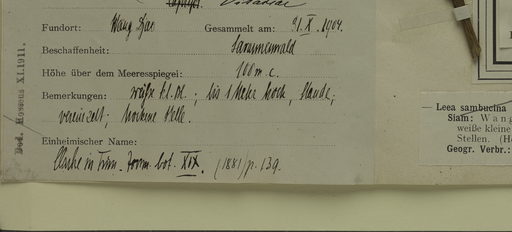 Vitaceae
Fundort: Wang Djao Gesammelt am: 21. X. 1904.
Beschaffenheit: Sammenwald
Höhe über dem Meeresspiegel: 100 m. c.
Bemerkungen: weiße kl. Bl., bis 1 Meter hoch, Staude,
vereinzelt; trockene Stelle.
Einheimischer Name:
Clarke in Trim. Journ. bot. XIX. (1881) p. 139.
Det. Hosseus XI.1911.
Leea sambucina
Siam: Wang
weiße kleine
Stellen. (H
Geogr. Verbr.: